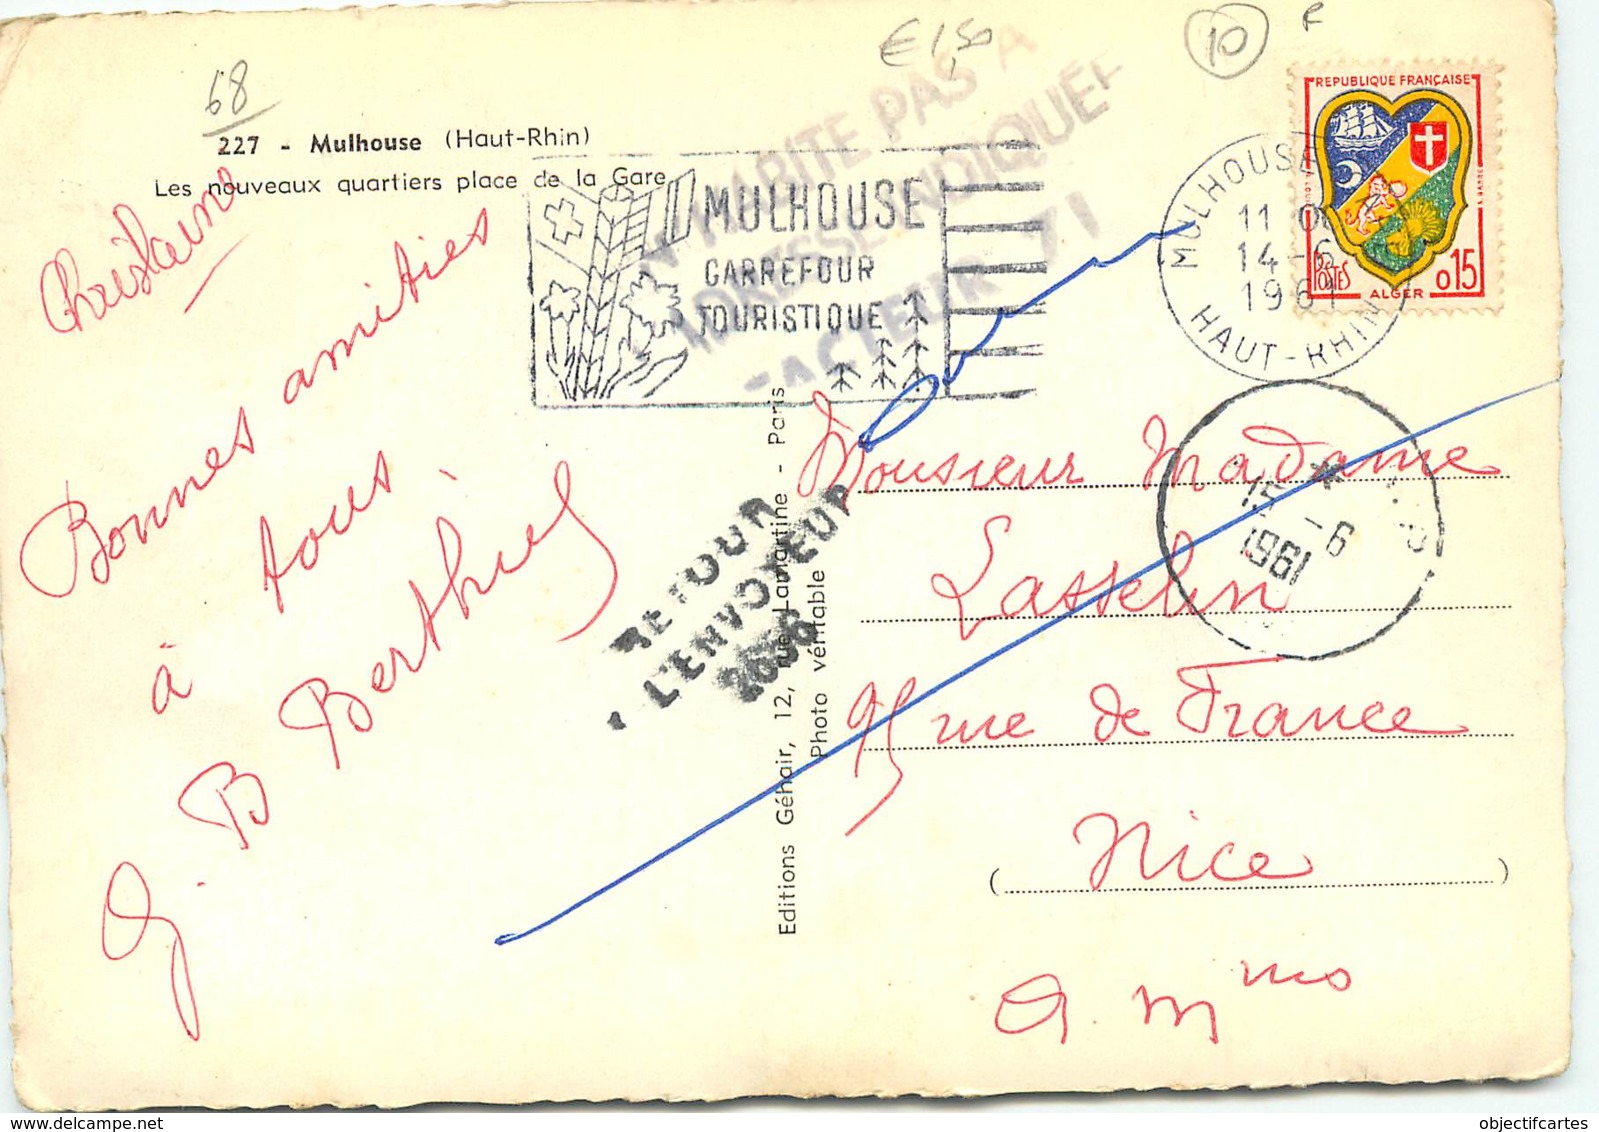 € 1,50
10
F
68
227 - Mulhouse (Haut-Rhin)
Les nouveaux quartiers place de la Gare
REPUBLIQUE FRANÇAISE
POSTES
ALGER
0,15
MULHOUSE
14-6
1961
HAUT-RHIN
MULHOUSE
CARREFOUR
TOURISTIQUE
N'HABITE PAS A
L'ADRESSE INDIQUEE
FACTEUR 71
Christiane
Bonnes amitiés
à tous
G. B Berthier
RETOUR
A L'ENVOYEUR
Editions Géhair, 12, rue Lamartine - Paris
Photo véritable
15 - 6
1961
Monsieur Madame
Lasselin
95 rue de France
( Nice )
A. M mos
objectifcartes